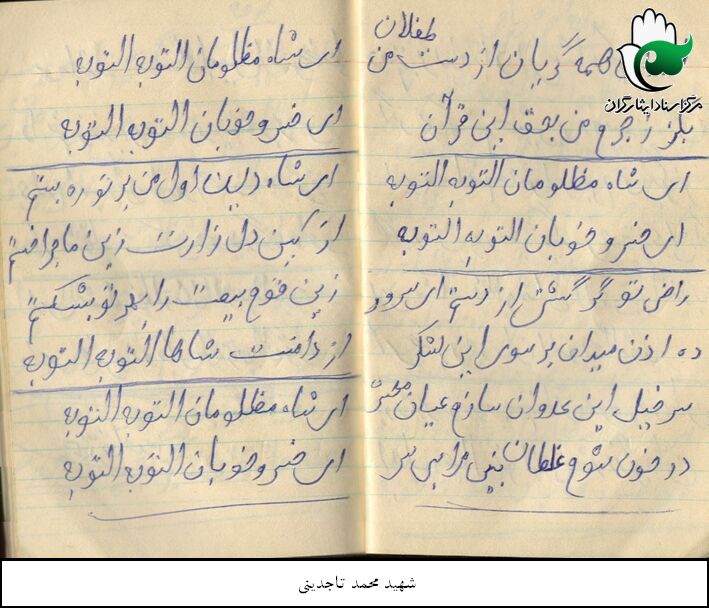 مرکز اسناد ایثارگران
طفلان
همه گریان از دست من
بگذر ز جرم من بحق این قرآن
ای شاه مظلومان التوبه التوبه
ای خسرو خوبان التوبه التوبه
راضی تو گر گشتی از دستم ای سرور
ده اذن میدان بر سوی این لشکر
سر خیل این عدوان سازم عیان محشر
در خون شوم غلطان بینی مرا بی سر
ای شاه مظلومان التوبه التوبه
ای خسرو خوبان التوبه التوبه
ای شاه دین اول من بر تو ره بستم
از کین دل زارت زین ماجرا خستم
زین قوم بیعت را بهر تو بشکستم
از دامنت شاها التوبه التوبه
ای شاه مظلومان التوبه التوبه
ای خسرو خوبان التوبه التوبه
شهید محمد تاجدینی